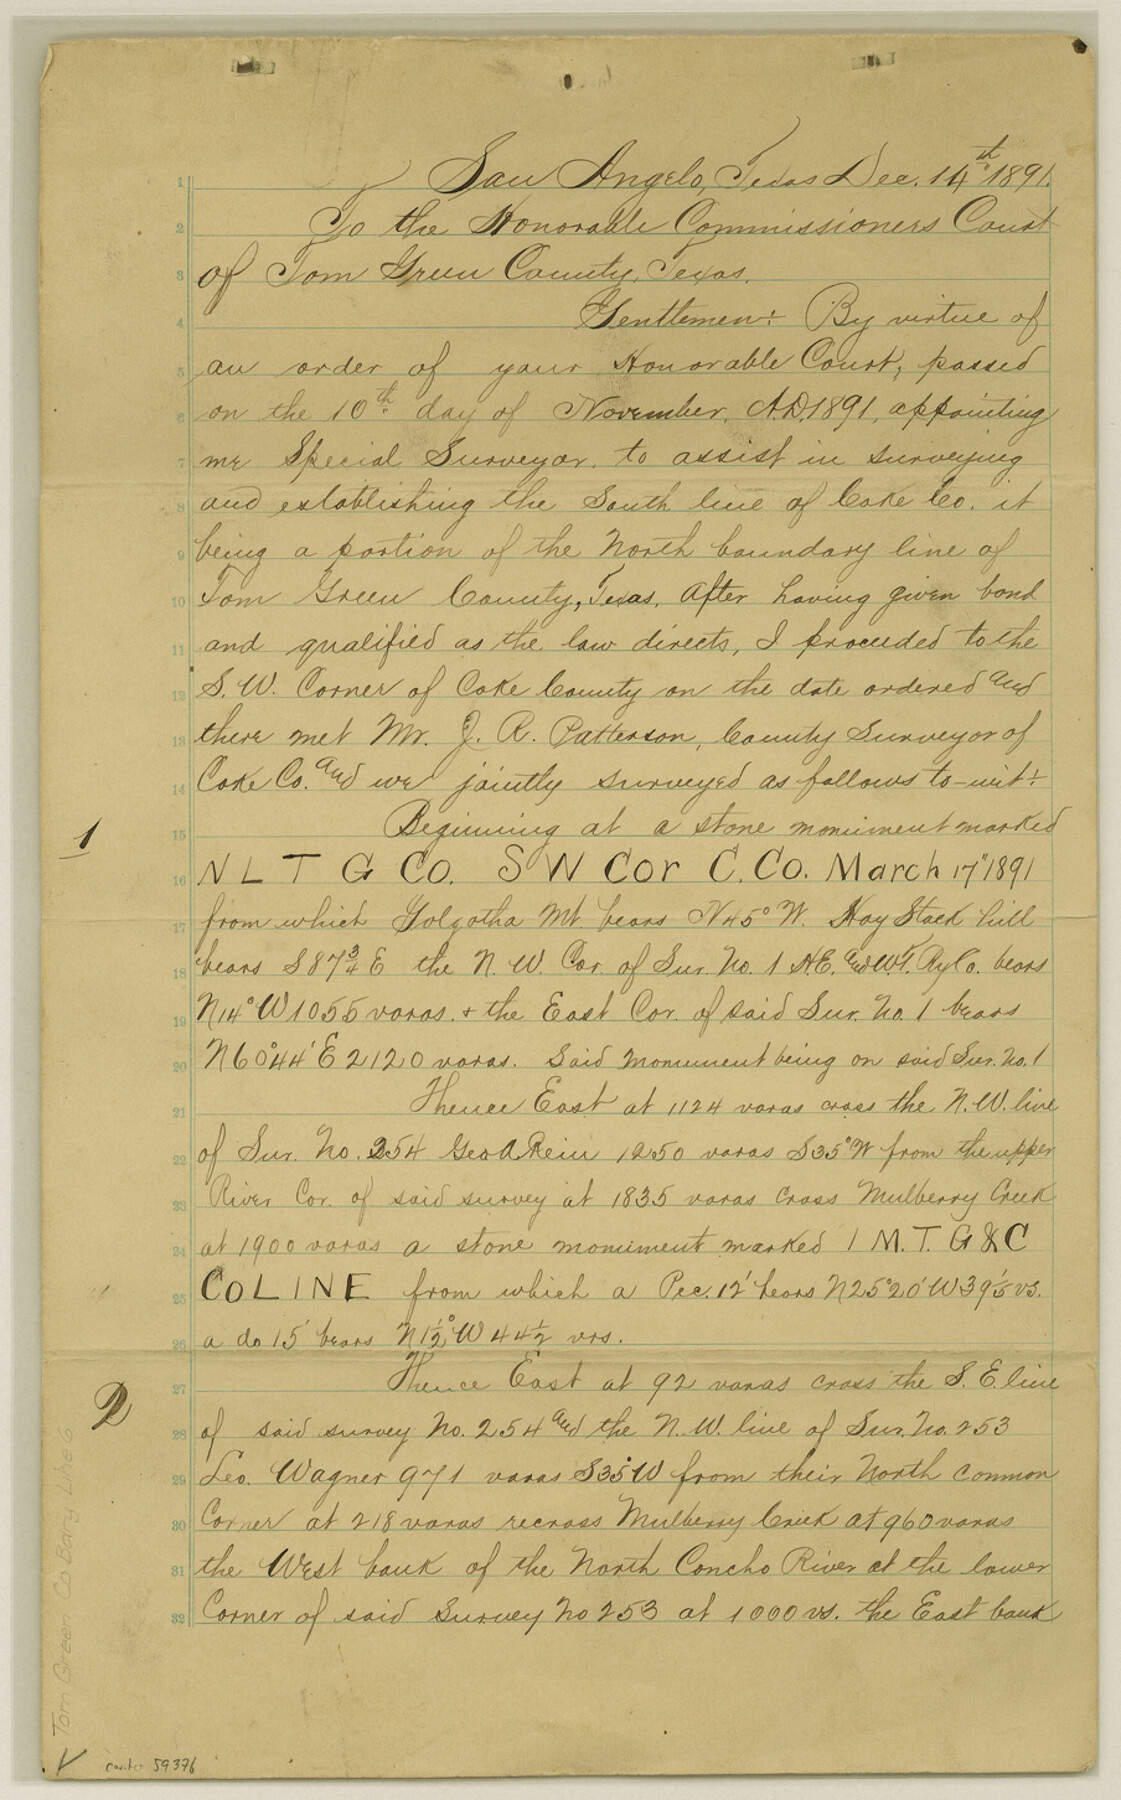 San Angelo, Texas Dec. 14th 1891.
To the Honorable Commissioners Court
of Tom Green County, Texas.
Gentlemen: By virtue of
an order of your Honorable Court, passed
on the 10th day of November, A.D. 1891, appointing
me Special Surveyor, to assist in surveying
and establishing the South line of Coke Co. it
being a portion of the North boundary line of
Tom Green County, Texas, After having given bond
and qualified as the law directs, I proceeded to the
S. W. Corner of Coke County on the date ordered and
there met Mr. J. R. Patterson, County Surveyor of
Coke Co. and we jointly surveyed as follows to-wit:
Beginning at a stone monument marked
N L T G Co. S W Cor C. Co. March 17" 1891
from which Golgotha Mt. bears N45° W. Hay Stack hill
bears S 87 3/4 E the N. W. Cor. of Sur. No. 1 H.E. and W.T. Ry Co. bears
N14° W 1055 varas. + the East Cor. of said Sur. No. 1 bears
N60°44' E 2120 varas. Said monument being on said Sur. No. 1
Thence East at 1124 varas cross the N. W. line
of Sur. No. 254 Geo A Rein 1250 varas S35° W from the upper
River Cor. of said survey at 1835 varas cross Mulberry Creek
at 1900 varas a stone monument marked 1 M. T. G & C
CO LINE from which a Pec. 12' bears N25°20' W 39 1/5 vs.
a do 15' bears N 1 1/2° W 44 1/2 vrs.
Thence East at 92 varas cross the S. E. line
of said survey No. 254 and the N. W. line of Sur. No. 253
Leo. Wagner 971 varas S35° W from their North common
Corner at 218 varas recross Mulberry Creek at 960 varas
the West bank of the North Concho River at the lower
Corner of said Survey No 253 at 1000 vs. the East bank
1
2
Tom Green Co Bdry Line 6
counter 59376